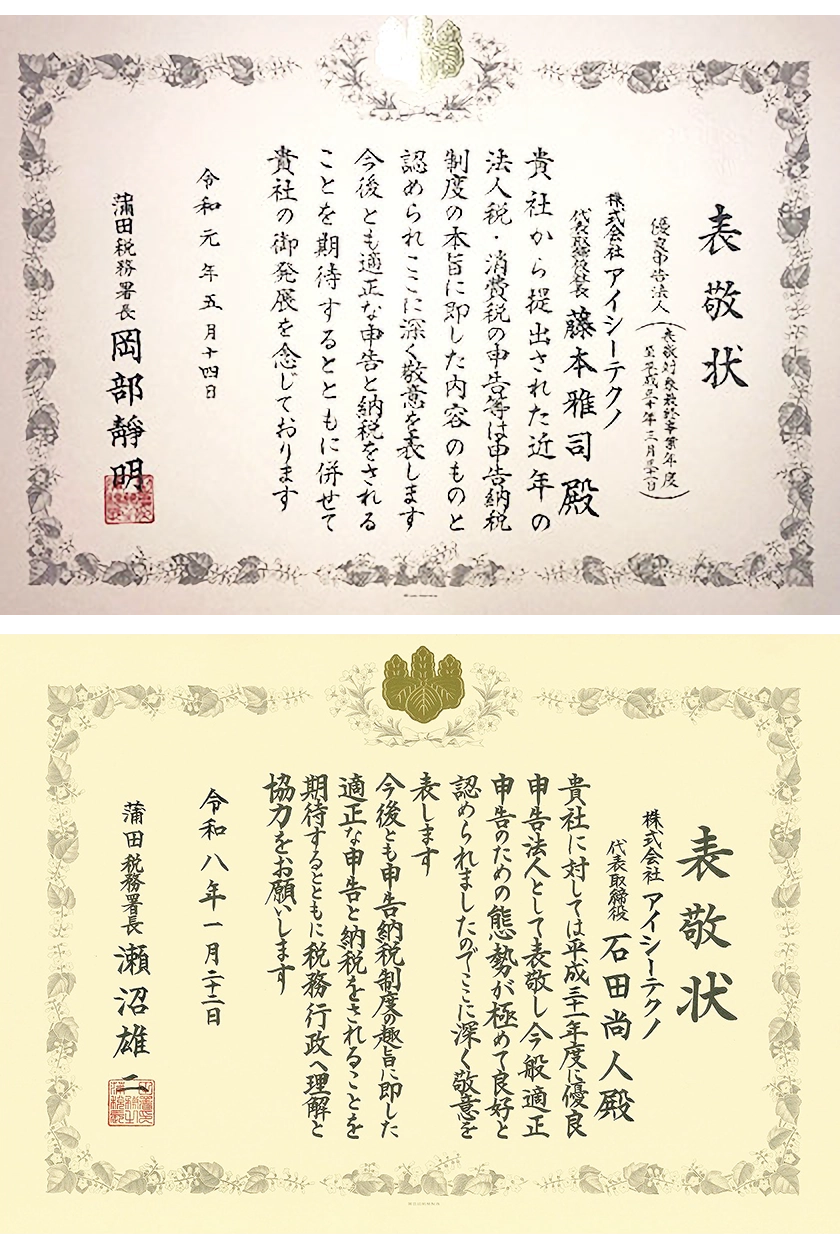 表敬状
優良申告法人
(表敬対象最終事業年度
至平成三十年三月三十一日)
株式会社 アイシーテクノ
代表取締役社長 藤本雅司殿
貴社から提出された近年の
法人税・消費税の申告等は申告納税
制度の本旨に即した内容のものと
認められここに深く敬意を表します
今後とも適正な申告と納税をされる
ことを期待するとともに併せて
貴社の御発展を念じております
令和元年五月十四日
蒲田税務署長 岡部靜明
表敬状
株式会社 アイシーテクノ
代表取締役 石田尚人殿
貴社に対しては平成三十一年度に優良
申告法人として表敬し今般適正
申告のための態勢が極めて良好と
認められましたのでここに深く敬意を
表します
今後とも申告納税制度の趣旨に即した
適正な申告と納税をされることを
期待するとともに税務行政へ理解と
協力をお願いします
令和八年一月二十二日
蒲田税務署長 瀬沼雄二